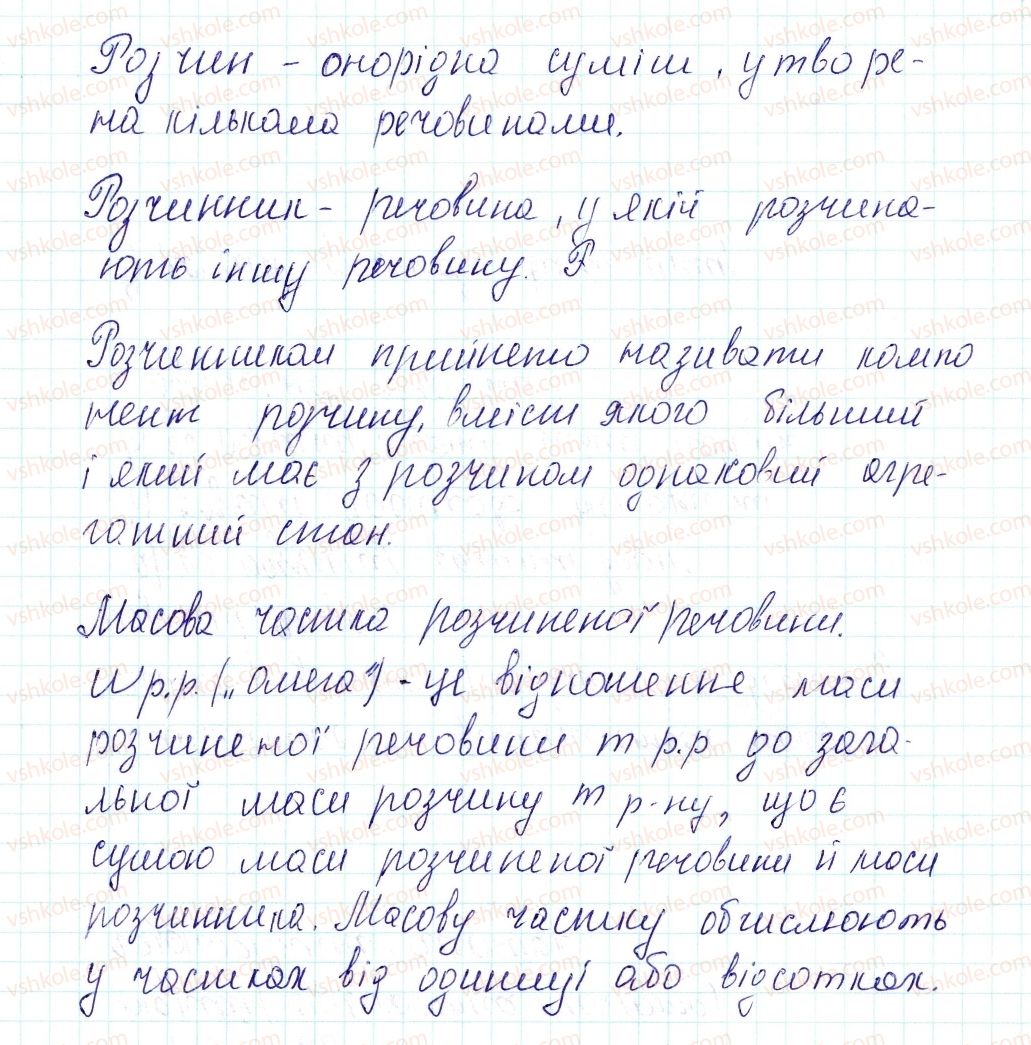 Розчин – онорідна суміш, утворе-
на кількома речовинами.
Розчинник – речовина, у якій розчиня-
ють іншу речовину. Р
Розчинником прийнято називати компо
нент розчину, вміст якого більший
і який має з розчином однаковий агре-
гатний стан.
Масова частка розчиненої речовини.
W р.р. („омега") - це відношення маси
розчиненої речовини m р.р до зага-
льної маси розчину m р-ну, що є
сумою маси розчиненої речовини й маси
розчинника. Масову частку обчислюють
у частках від одиниці або відсотках.